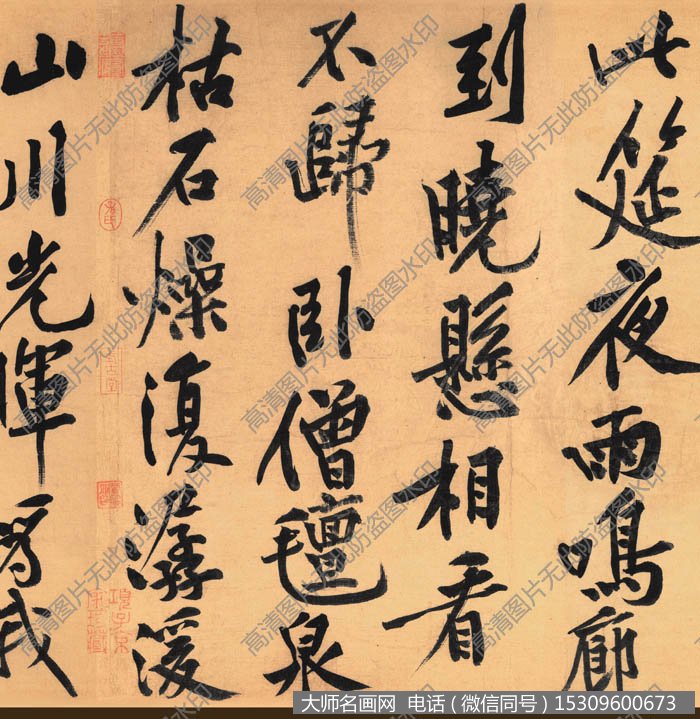 此筵夜雨鳴廊
到曉懸相看
不歸臥僧氈泉
枯石燥復潺湲
山川光暉為我
項子京
家珍藏
高清图片无此防盗图水印
大师名画网 电话（微信同号）15309600673